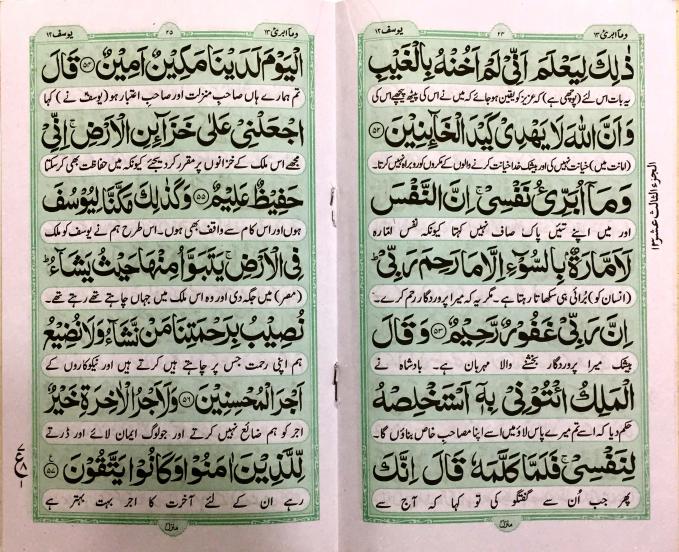 وما ابرئ ١٣
٢٤
يوسف ١٢
ذٰلِكَ لِيَعْلَمَ اَنِّيْ لَمْ اَخُنْهُ بِالْغَيْبِ
یہ بات اس لئے (پوچھی ہے) کہ عزیز کو یقین ہو جائے کہ میں نے اس کی پیٹھ پیچھے اس کی
وَ اَنَّ اللّٰهَ لَا يَهْدِيْ كَيْدَ الْخَآىِٕنِيْنَ ۝٥٢
(امانت میں) خیانت نہیں کی اور بیشک خدا خیانت کرنے والوں کے مکروں کو روبراہ نہیں کرتا۔
وَ مَاۤ اُبَرِّئُ نَفْسِيْ ۚ اِنَّ النَّفْسَ
اور میں اپنے تئیں پاک صاف نہیں کہتا کیونکہ نفس امّارہ
لَاَمَّارَةٌۢ بِالسُّوْٓءِ اِلَّا مَا رَحِمَ رَبِّيْ ؕ
(انسان کو) بُرائی ہی سکھاتا رہتا ہے۔ مگر یہ کہ میرا پروردگار رحم کرے۔
اِنَّ رَبِّيْ غَفُوْرٌ رَّحِيْمٌ ۝٥٣ وَ قَالَ
بیشک میرا پروردگار بخشنے والا مہربان ہے۔ بادشاہ نے
الْمَلِكُ ائْتُوْنِيْ بِهٖۤ اَسْتَخْلِصْهُ
حکم دیا کہ اسے تم میرے پاس لاؤ میں اسے اپنا مصاحب خاص بناؤں گا۔
لِنَفْسِيْ ۚ فَلَمَّا كَلَّمَهٗ قَالَ اِنَّكَ
پھر جب اُن سے گفتگو کی تو کہا کہ آج سے
منزل
الجزء الثالث عشر ١٣
وما ابرئ ١٣
٢٥
يوسف ١٢
الْيَوْمَ لَدَيْنَا مَكِيْنٌ اَمِيْنٌ ۝٥٤ قَالَ
تم ہمارے ہاں صاحب منزلت اور صاحب اعتبار ہو (یوسف نے) کہا
اجْعَلْنِيْ عَلٰى خَزَآىِٕنِ الْاَرْضِ ۚ اِنِّيْ
مجھے اس ملک کے خزانوں پر مقرر کر دیجئے کیونکہ میں حفاظت بھی کر سکتا
حَفِيْظٌ عَلِيْمٌ ۝٥٥ وَ كَذٰلِكَ مَكَّنَّا لِيُوْسُفَ
ہوں اور اس کام سے واقف بھی ہوں۔ اس طرح ہم نے یوسف کو ملک
فِي الْاَرْضِ ۚ يَتَبَوَّاُ مِنْهَا حَيْثُ يَشَآءُ ؕ
(مصر) میں جگہ دی اور وہ اس ملک میں جہاں چاہتے تھے رہتے تھے۔
نُصِيْبُ بِرَحْمَتِنَا مَنْ نَّشَآءُ وَ لَا نُضِيْعُ
ہم اپنی رحمت جس پر چاہتے ہیں کرتے ہیں اور نیکوکاروں کے
اَجْرَ الْمُحْسِنِيْنَ ۝٥٦ وَ لَاَجْرُ الْاٰخِرَةِ خَيْرٌ
اجر کو ہم ضائع نہیں کرتے اور جو لوگ ایمان لائے اور ڈرتے
لِّلَّذِيْنَ اٰمَنُوْا وَ كَانُوْا يَتَّقُوْنَ ۝٥٧
رہے ان کے لئے آخرت کا اجر بہت بہتر ہے
منزل